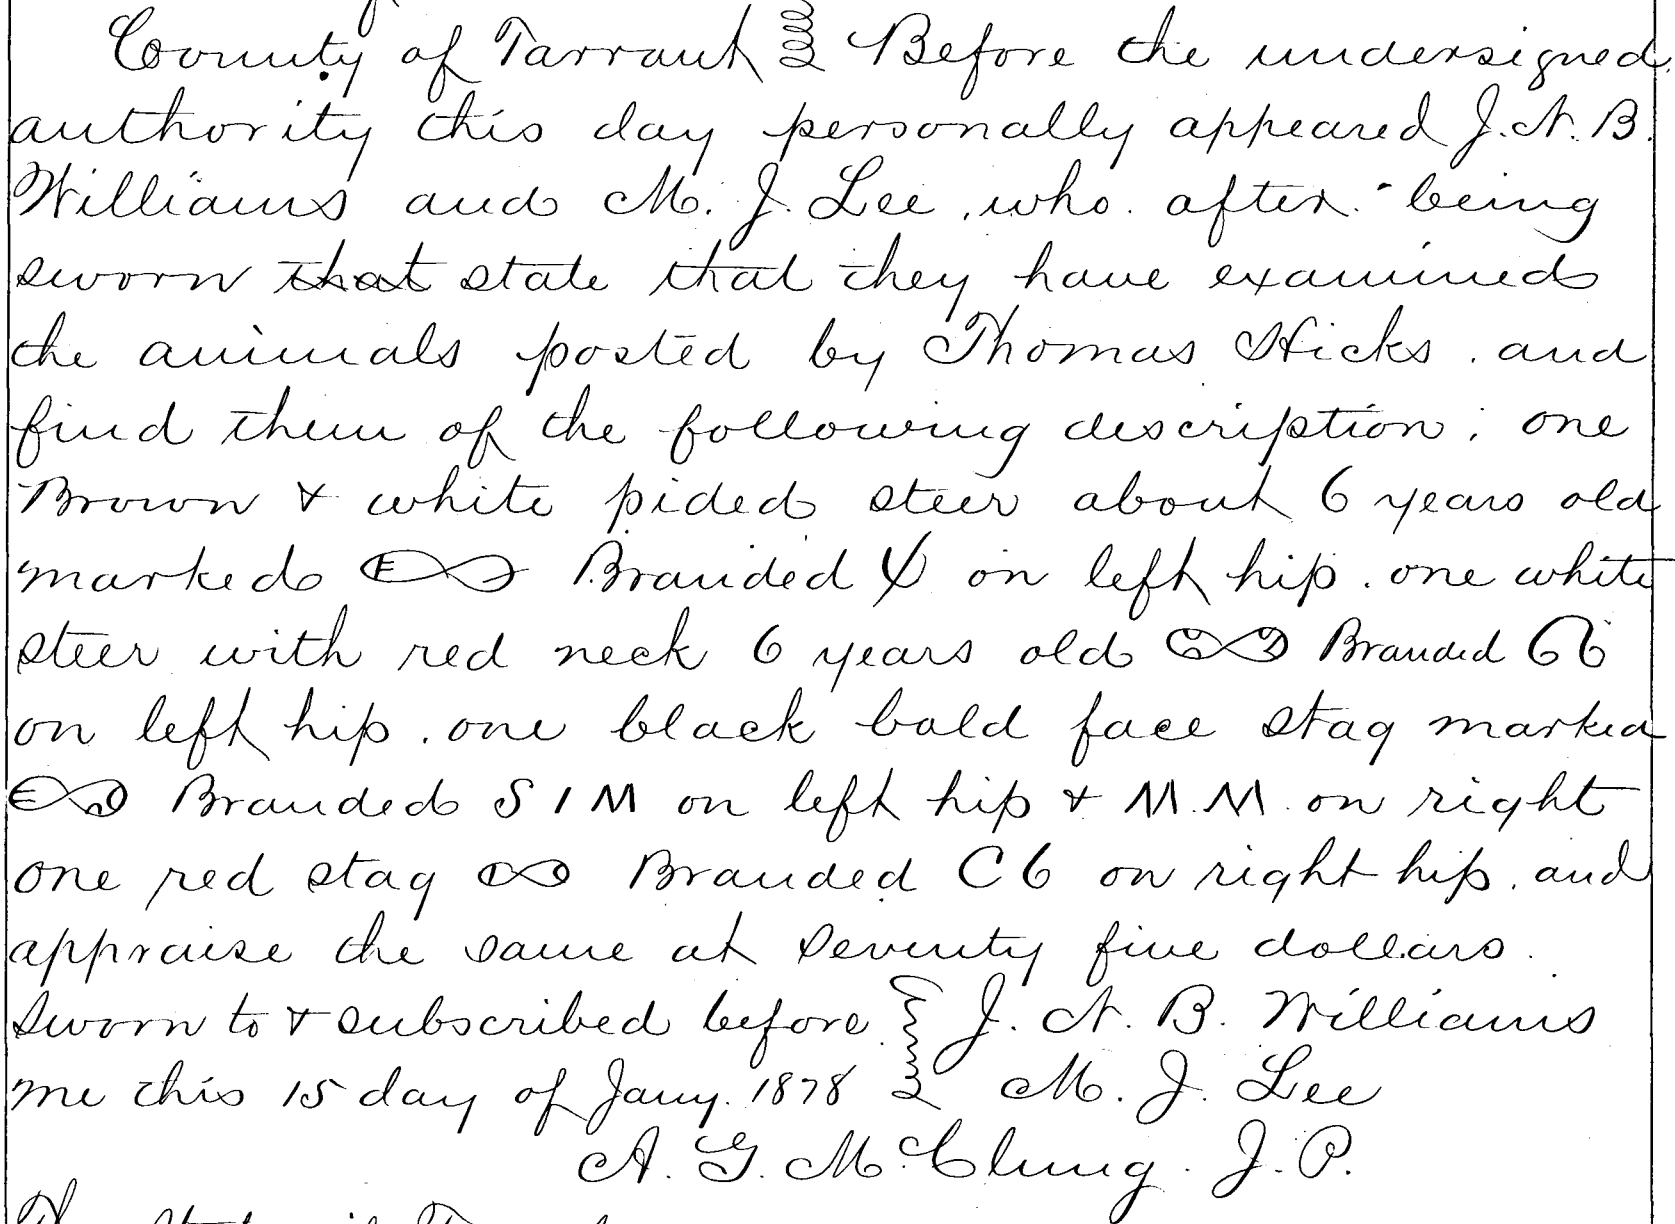 County of Tarrant Before the undersigned
authority this day personally appeared J. N. B.
Williams and M. J. Lee, who after being
sworn that state that they have examined
the animals posted by Thomas Hicks. and
find them of the following description; one
Brown & white pided steer about 6 years old
marked Branded on left hip. one white
steer with red neck 6 years old Branded 66
on left hip. one black bald face stag marked
Branded S I M on left hip & M. M. on right
one red stag Branded C6 on right hip. and
appraise the same at Seventy five dollars.
Sworn to & subscribed before J. N. B. Williams
me this 15 day of Jany. 1878 M. J. Lee
A. G. McClung. J. P.